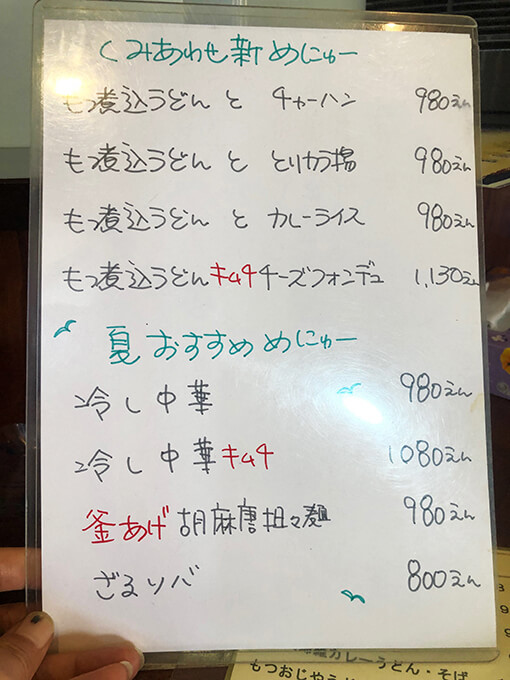 くみあわせ新めにゅー
もつ煮込うどん と チャーハン 980えん
もつ煮込うどん と とりカラ揚 980えん
もつ煮込うどん と カレーライス 980えん
もつ煮込うどんキムチチーズフォンデュ 1,130えん
夏おすすめめにゅー
冷し中華 980えん
冷し中華キムチ 1080えん
釜あげ胡麻唐担々麺 980えん
ざるソバ 800えん
カレーうどん・そば